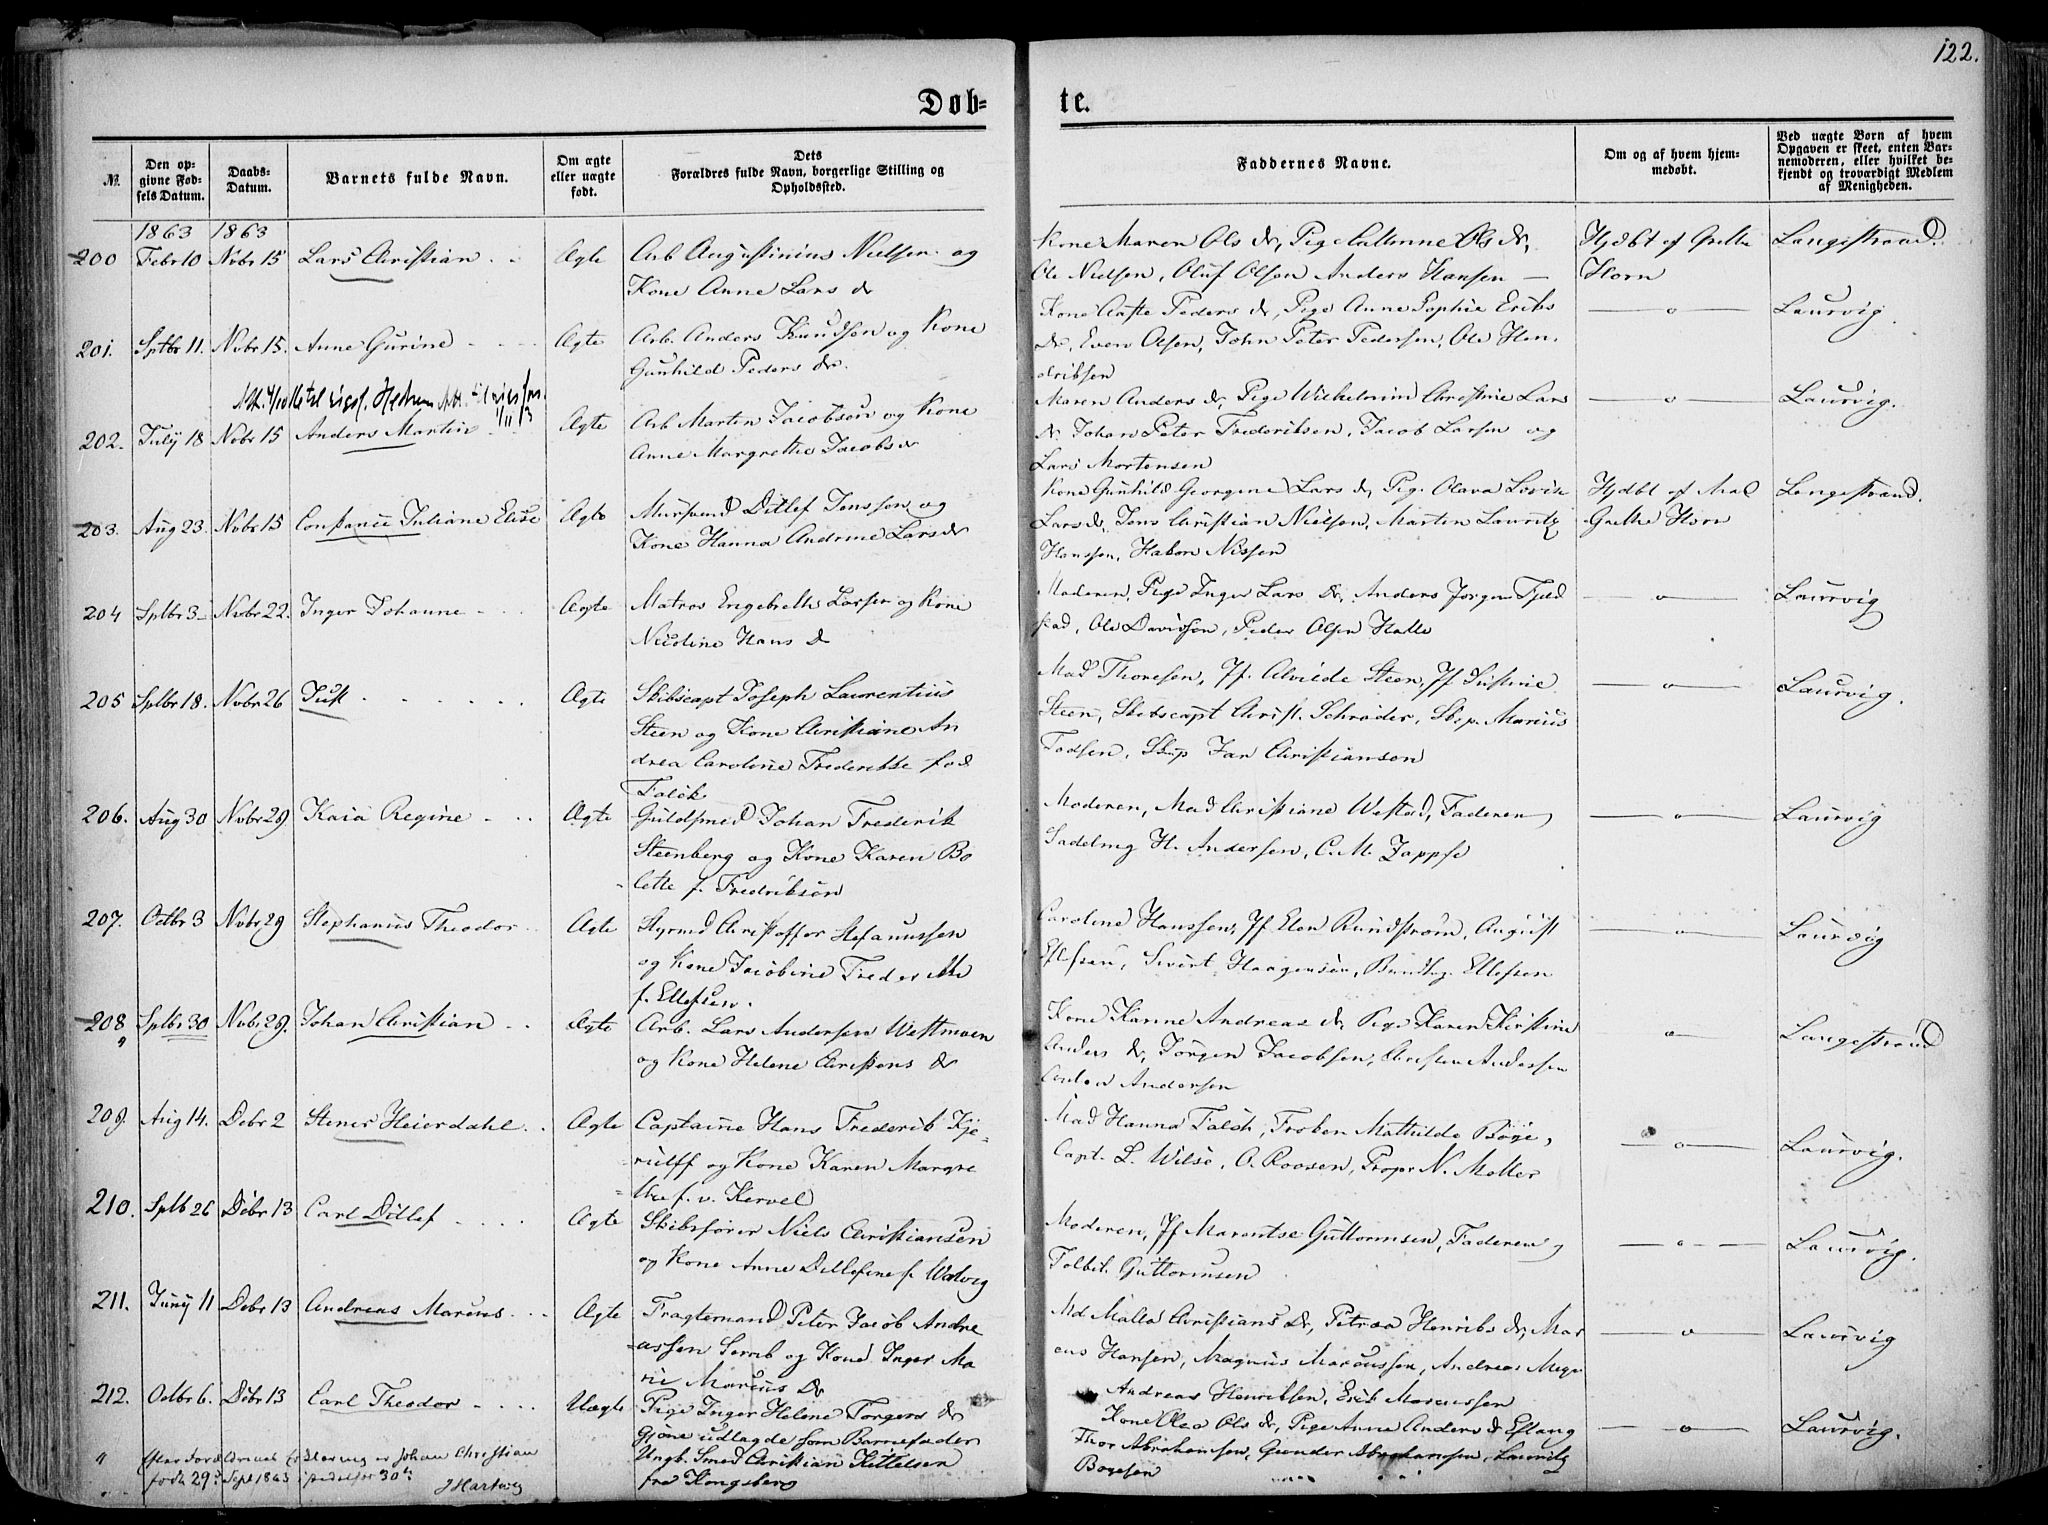 122.
Døb-
te.
№.
Den op-
givne Fød-
sels Datum.
Daabs-
Datum.
Barnets fulde Navn.
Om ægte
eller uægte
født.
Dets
Forældres fulde Navn, borgerlige Stilling og
Opholdssted.
Faddernes Navne.
Om og af hvem hjem-
medøbt.
Ved uægte Børn af hvem
Opgaven er skeet, enten Bar-
nemoderen, eller hvilket be-
kjendt og troværdigt Medlem
af Menigheden.
1863 1863
200 Febr 10 Nvbr 15 Lars Christian Ægte Arb Augustinius Nielsen og
Kone Anne Lars dr
Kone Maren Ols dr, Pige Ols dr,
Ole Nielsen, Oluf Olsen Anders Hansen
Hjdbt af Grethe
Horn
Langestrand
201. Sptbr 11. Nvbr 15. Anne Gurine Ægte Arb. Anders Knudsen og Kone
Gunhild Peders dr.
Kone Peders dr, Pige Anne Sophie Eriks
dr, Even Olsen, John Peter Pedersen, Ole Hen
driksen
Laurvig.
202. July 18 Nvbr 15 Anders Martin Ægte Arb Martin Jacobsen og Kone
Anne Margrethe Jacobs dr
Maren Anders dr, Pige Wilhelmine Christine Lars
dr. Johan Peter Frederiksen, Jacob Larsen og
Lars Mortensen
Laurvig.
203. Aug 23. Nvbr 15 Constance Juliane Elise Ægte Ditlef Jonsson og
Kone Hanna Andrine Lars dr
Kone Gunhild Georgene Lars dr, Pig. Olava Lovise
Lars dr, Jens Christian Nielsen, Martin Lauritz
Hanssen, Hakon Nissen
Hjdbt af Mad
Grethe Horn
Langestrand.
204 Sptbr 3 Nvbr 22. Inger Johanne Ægte Matros Engebreth Larsen og Kone
Nicoline Hans dr
Moderen, Pige Inger Lars dr, Anders Jørgen Fjeld
stad, Ole Davidsen, Peder Olsen Halle
Laurvig
205 Sptbr 18. Nvbr 26 Just Ægte Skibscapt Joseph Laurentius
Steen og Kone Christiane An
drea Caroline Frederikke fød
Falck
Mad Thoresen, Jf. Alvilde Steen, Jf
Steen, Skibscapt Christ. Schrøder, Skp. Marius
Skip Jan Christiansen
Laurvig.
206. Aug 30 Nvbr 29. Kaia Regine Ægte Guldsmed Johan Frederik
Steenberg og Kone Karen Bo
lette f. Fredriksen
Moderen, Mad Christiane Wefstad, Faderen,
Sadelmg H. Andersen, C. M. Zappfe
Laurvig
207. Octbr 3 Nvbr 29 Stephanius Theodor Ægte Styrmd Christoffer Stefanussen
og Kone Jacobine Frederikke
f. Ellefsen.
Caroline Hanssen, Jf Elen Rundstrøm, August
Ellefsen, Sivert Haagensen, Ellefsen
Laurvig
208 Sptbr 30 Nvbr 29. Johan Christian Ægte Arb. Lars Andersen Westmoen
og Kone Helene Christens dr
Kone Karine Andreas dr, Pige Karen Kirstine
Anders dr, Jørgen Jacobsen, Christen Andersen
Anton Andersen
Langestrand
209. Aug 14. Dcbr 2 Stener Heierdahl Ægte Captaine Hans Frederik Kje-
rulff og Kone Karen Margre
the f. v. Kervel
Mad Hanna Falch, Frøken Mathilde Bøge,
Capt. L. Wilse, O. Roosen, Propr N. Møller
Laurvig.
210. Sptb 26 Dcbr 13 Carl Ditlef Ægte Skibsfører Niels Christiansen
og Kone Anne Ditlefine f. Walvig
Moderen, Jf Marentse Guttormsen, Faderen,
Tolbet. Guttormsen
Laurvig.
211. Juny 11 Dcbr 13 Andreas Marcus Ægte Fragtemand Peter Jacob Andre
assen og Kone Inger Ma
rie Marcus dr
Md Malla Christians dr, Petrea Henriks dr, Mar
cus Hansen, Magnus Marcussen, Andreas
Andreas Henriksen, Erik Marcussen
Laurvig
212. Octbr 6. Dcbr 13 Carl Theodor Uægte Pige Inger Helene Torgers dr
Gjøne udlagde som Barnefader
Ungk. Smed Christian Kittelsen
fra Kongsberg
Kone Olea Ols dr, Pige Anne Anders dr Eftang
Thor Abrahamsen, Gunder Abrahamsen, Lauritz
Bøgesen
Laurvig.
" Efter Forældrenes Erklæring er Johan Christian
født 29. Sept 1863 istedetfor 30.
J Hartwig